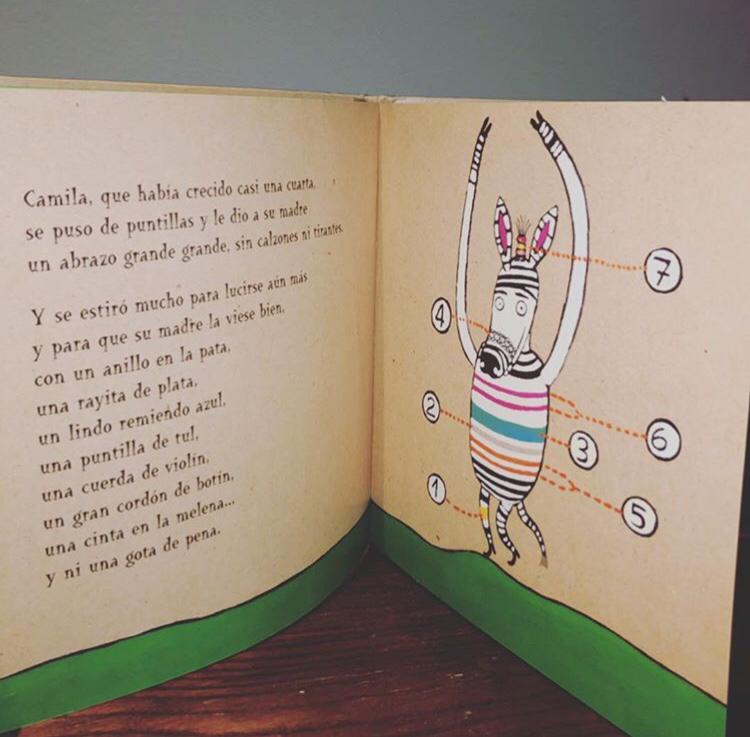 Camila, que había crecido casi una cuarta,
se puso de puntillas y le dio a su madre
un abrazo grande grande, sin calzones ni tirantes.
Y se estiró mucho para lucirse aún más
y para que su madre la viese bien,
con un anillo en la pata,
una rayita de plata,
un lindo remiendo azul,
una puntilla de tul,
una cuerda de violín,
un gran cordón de botín,
una cinta en la melena...
y ni una gota de pena.
7
4
2
3
6
1
5